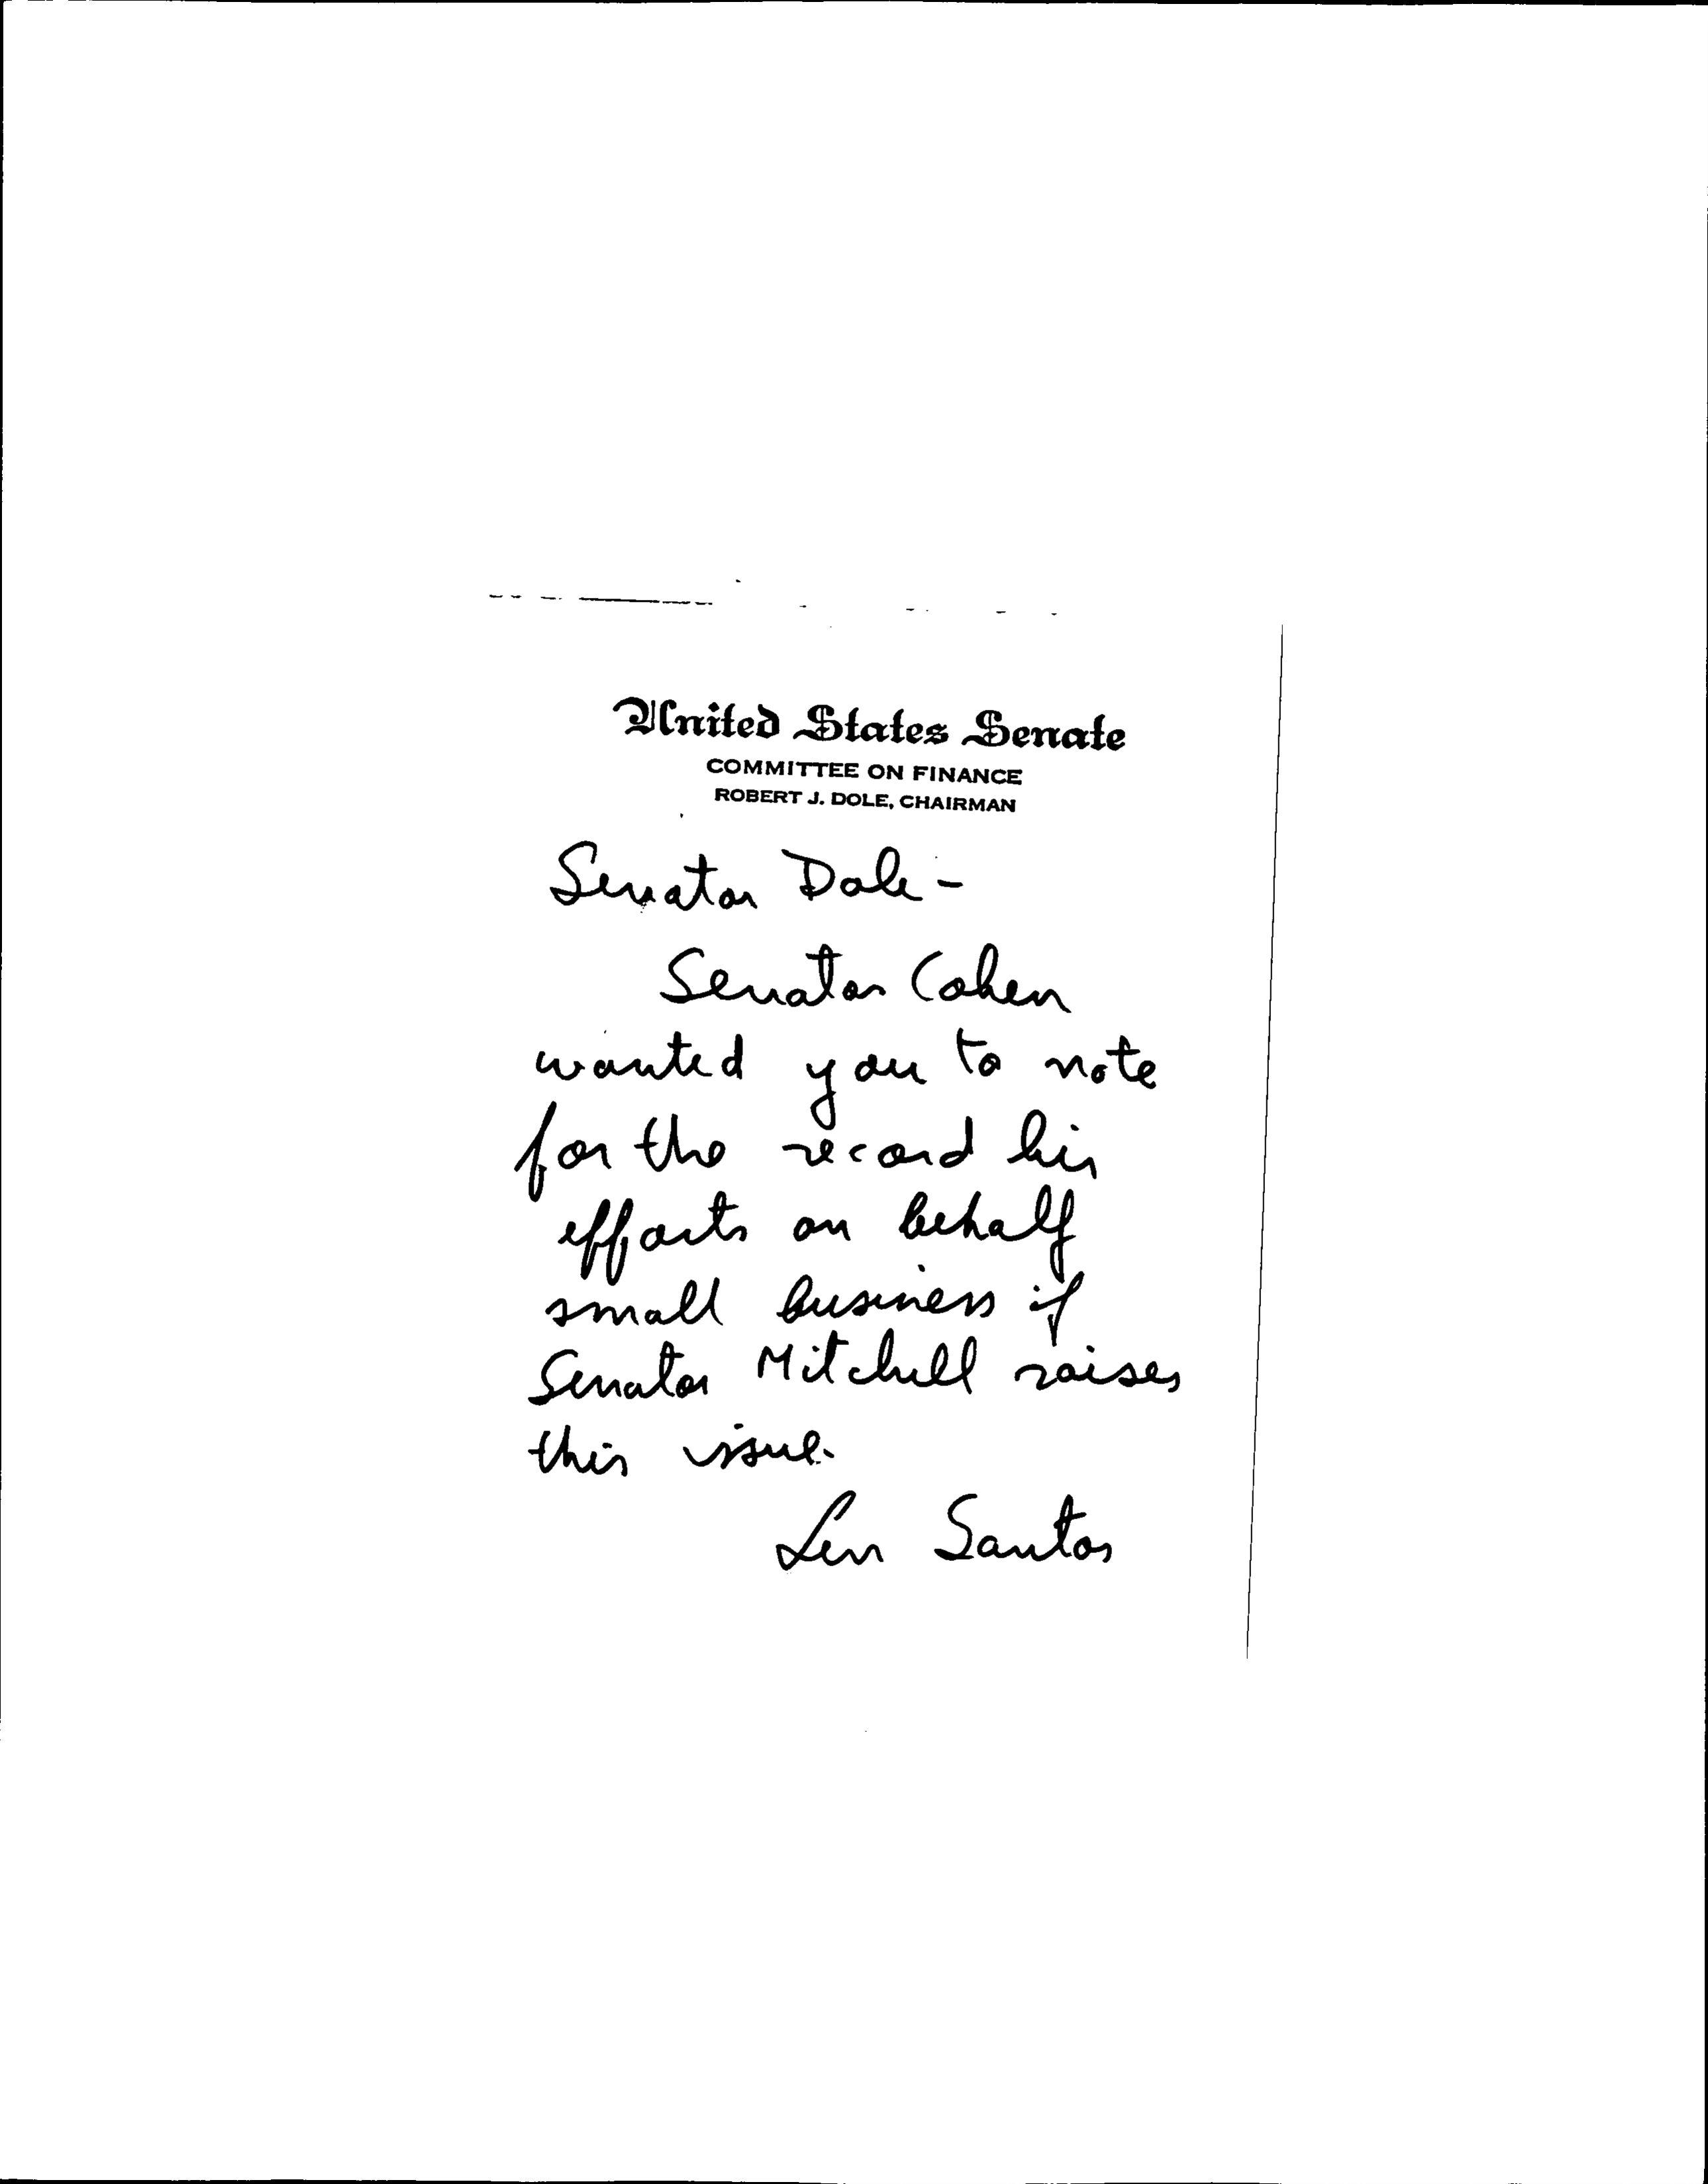 United States Senate
COMMITTEE ON FINANCE
ROBERT J. DOLE, CHAIRMAN
Senator Dole -
Senator Cohen
wanted you to note
for the record his
efforts on behalf
small business if
Senator Mitchell raises
this issue.
Len Santos